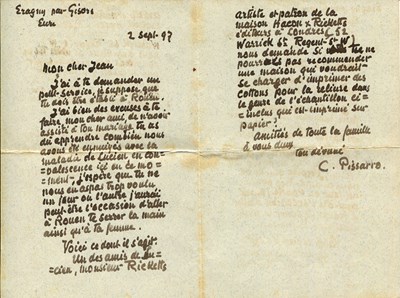 Eragny par Gisors
Eure
2 Sept. 97
Mon cher Jean
J'ai à te demander un
petit service, je suppose que
tu dois être établi à Rouen.
J'ai bien des excuses à te
faire, mon cher ami, de n'avoir
assisté à ton mariage, tu as
dû apprendre combien nous
avons été ennuyés avec la
maladie de Lucien en con-
=valescence ici en ce mo=
=ment; j'espère que tu ne
nous en as pas trop voulu
un jour ou l'autre j'aurai
peut être l'occasion d'aller
à Rouen te serrer la main
ainsi qu'à ta femme.
Voici ce dont il s'agit.
Un des amis de Lu=
=cien, monsieur Ricketts
artiste et patron de la
maison Hacon & Ricketts
éditeurs à Londres (52
Warwick St Regent St W)
nous demande si tu ne
pourrais pas recommander
une maison qui voudrait
se charger d'imprimer des
cottons pour la reliure dans
le genre de l'échantillon ci=
=inclus qui est imprimé sur
papier?
Amitiés de toute la famille
à vous deux
ton dévoué
C. Pissarro.